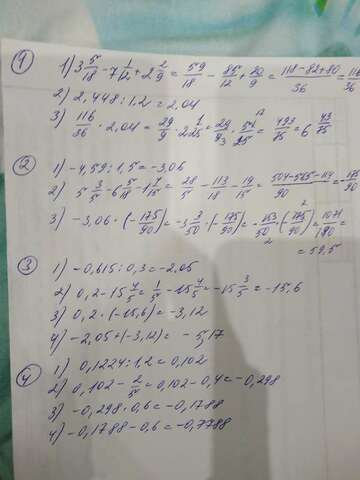 ① 1) 3 5/18 - 7 1/12 + 2 2/9 = 59/18 - 85/12 + 20/9 = (118-82+80)/36 = 116/36
2) 2,448 : 1,2 = 2,04
3) 116/36 · 2,04 = 29/9 · 2 1/25 = 29/3 · 51/25 17 = 493/75 = 6 43/75
② 1) -4,59 : 1,5 = -3,06
2) 5 3/5 - 6 5/18 - 1 4/15 = 28/5 - 113/18 - 19/15 = (504-565-114)/90 = -175/90
3) -3,06 · (-175/90) = -3 3/50 · (-175/90) = -153/50 · (-175/90) =
= 59,5
③ 1) -0,615 : 0,3 = -2,05
2) 0,2 - 15 4/5 = 1/5 - 15 4/5 = -15 3/5 = -15,6
3) 0,2 · (-15,6) = -3,12
4) -2,05 + (-3,12) = -5,17
④ 1) 0,1224 : 1,2 = 0,102
2) 0,102 - 2/5 = 0,102 - 0,4 = -0,298
3) -0,298 · 0,6 = -0,1788
4) -0,1788 - 0,6 = -0,7788